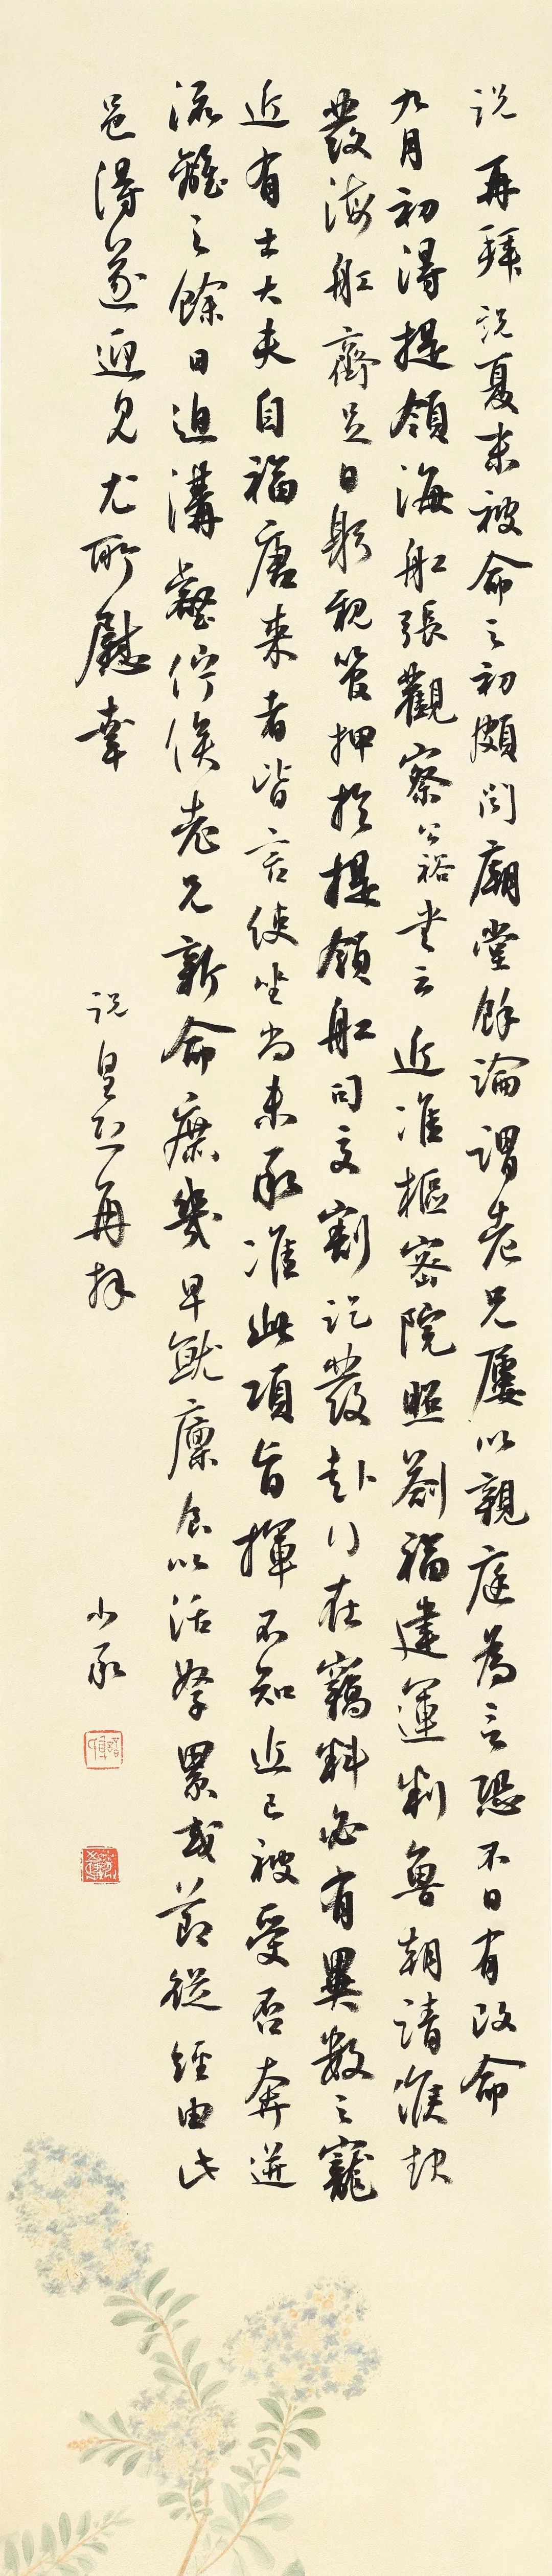 说再拜说夏末被命之初頗聞廟堂餘論謂老兄屢以親庭為言恐不日有改命
九月初得提領海舡張觀察公裕書云近准樞密院照劄福建運判魯朝請候起
發海舡齊足日躬親管押於提領舡司交割訖發赴行在竊料必有異數之寵
近有士大夫自福唐来者皆言使坐尚未承准此項旨揮不知近已被受否奔迸
流離之餘日迫溝壑佇俟老兄新命庶幾早就廩食以活孥累或節從經由此
邑得遂迎見尤所慰幸
说皇恐再拜
小承